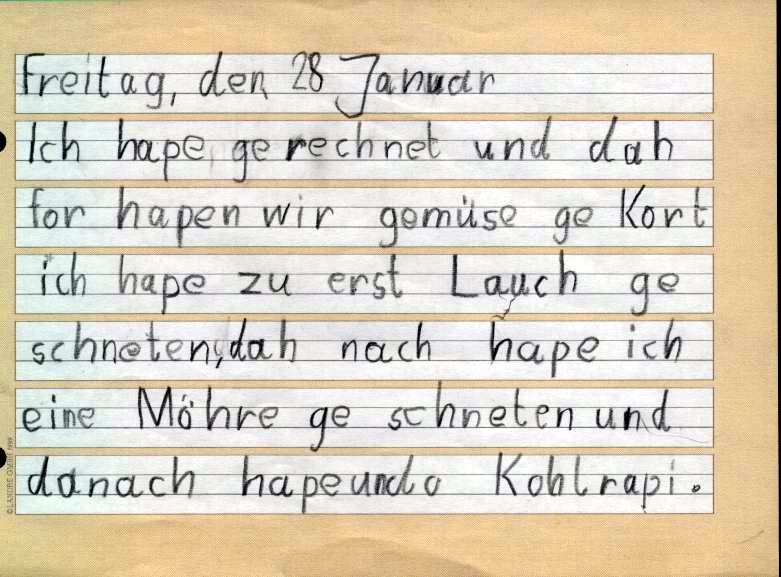 Freitag, den 28 Januar
Ich hape gerechnet und dah
for hapen wir gemüse ge Kort
ich hape zu erst Lauch ge
schneten, dah nach hape ich
eine Möhre ge schneten und
danach hape Kohlrapi.
© LANDRE GMBH 1999